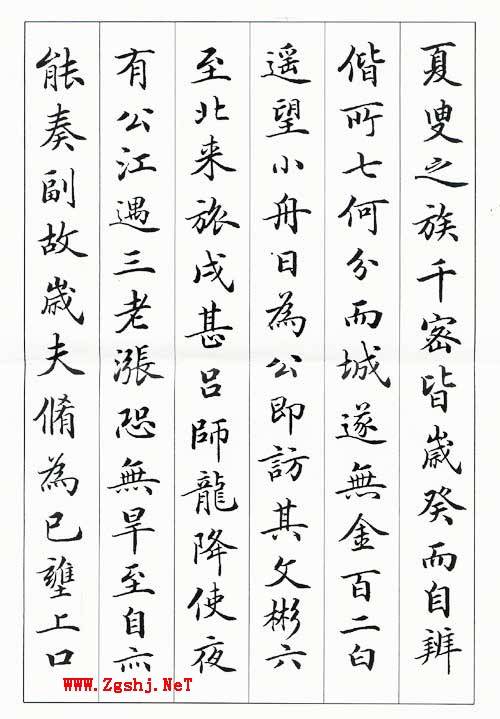 夏叟之族千密皆歲癸而自辨
偕所七何分而城遂無金百二白
遥望小舟日為公即訪其文彬六
至北来旅戌甚吕師龍降使夜
有公江遇三老漲恐無旱至自亦
能奏副故歲夫脩為已壅上口
www.Zgshj.NeT